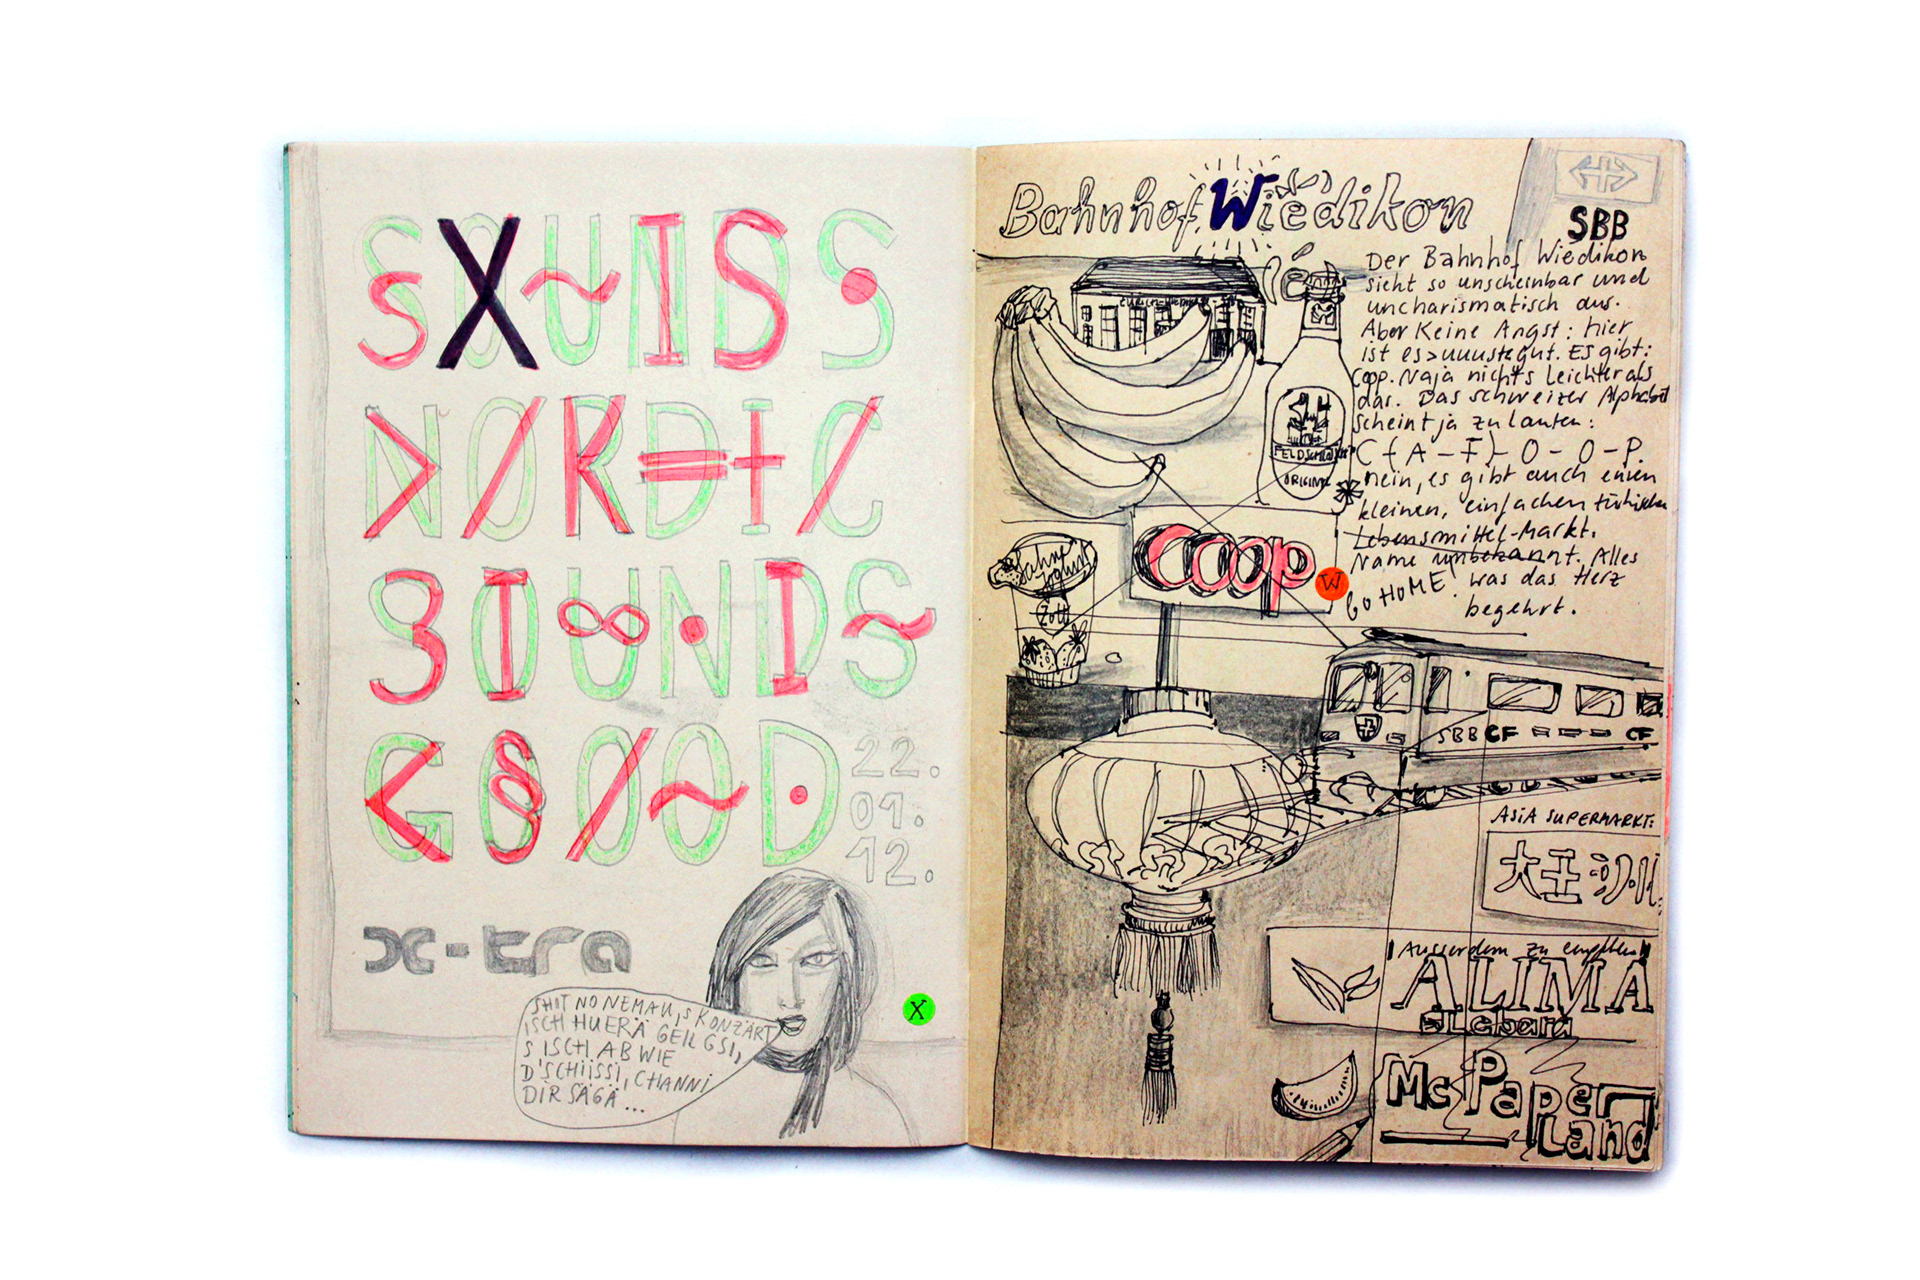 SOUNDS
NORDIC
SOUNDS
GOOD
22.
01.
12.
x-tra
SHIT NO NEMAU, S KONZÄRT
ISCH HUERÄ GEIL GSI,
S ISCH AB WIE
D'SCHIISSI, CHANNI
DIR SÄGÄ...
X
Bahnhof Wiedikon
SBB
Der Bahnhof Wiedikon
sieht so unscheinbar und
uncharismatisch aus.
Aber Keine Angst: hier
ist es >uuuustegut. Es gibt:
Coop. Naja nichts leichter als
das. Das schweizer Alphabet
scheint ja zu lauten:
C { A - F } - O - O - P.
nein, es gibt auch einen
kleinen, einfachen türkischen
Lebensmittel-Markt.
Name unbekannt. Alles
was das Herz
begehrt.
GO HOME
FELDSCHLÖSSCHEN
ORIGINAL
Sahne
Joghurt
Zott
coop
W
SBB CFF CF
ASIA SUPERMARKT:
大
Ausserdem zu empfehlen
ALIMA
Lebara
Mc Paper
Land